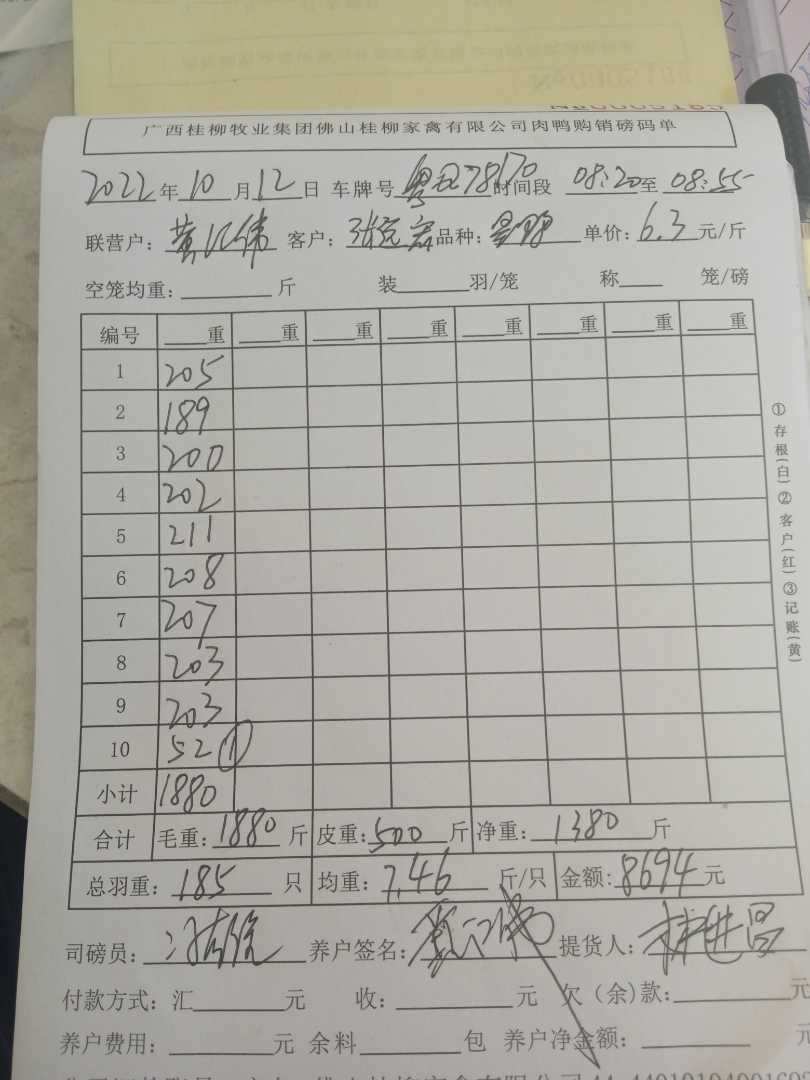 广西桂柳牧业集团佛山桂柳家禽有限公司肉鸭购销磅码单
2022年10月12日 车牌号 78170 时间段 08:20至08:55
联营户: 黄 伟 客户: 张 品种: 单价: 6.3元/斤
空笼均重: 斤 装 羽/笼 称 笼/磅
编号 重 重 重 重 重 重 重 重
1 205
2 189
3 200
4 202
5 211
6 208
7 207
8 203
9 203
10 52 ①
小计 1880
合计 毛重: 1880 斤 皮重: 500 斤 净重: 1380 斤
总羽重: 185 只 均重: 7.46 斤/只 金额: 8694元
司磅员: 养户签名: 提货人: 昌
付款方式: 汇 元 收: 元 欠(余)款: 元
养户费用: 元 余料 包 养户净金额: 元
①存根(白)②客户(红)③记账(黄)